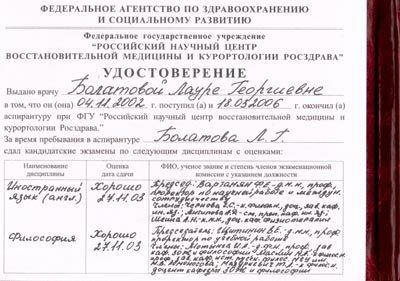 ФЕДЕРАЛЬНОЕ АГЕНТСТВО ПО ЗДРАВООХРАНЕНИЮ
И СОЦИАЛЬНОМУ РАЗВИТИЮ
Федеральное государственное учреждение
“РОССИЙСКИЙ НАУЧНЫЙ ЦЕНТР
ВОССТАНОВИТЕЛЬНОЙ МЕДИЦИНЫ И КУРОРТОЛОГИИ РОСЗДРАВА”
УДОСТОВЕРЕНИЕ
Выдано врачу Болатовой Лауре Георгиевне
в том, что он (она) 04.11.2002 г. поступил (а) и 18.05.2006 г. окончил (а)
аспирантуру при ФГУ “Российский научный центр восстановительной медицины и
курортологии Росздрава.”
За время пребывания в аспирантуре Болатова Л.Г.
сдал кандидатские экзамены по следующим дисциплинам с оценками:
Наименование дисциплины
Оценка дата сдачи
ФИО, ученое звание и степень членов экзаменационной комиссии с указанием должности
Иностранный язык (англ.)
Хорошо 27.11.03
Председ: Вартанян Ф.Е. - д.м.н., проф.,
проректор по научной работе и междунар.
сотрудничеству
Философия
Хорошо 27.11.03
Председатель: Щитинин В.Е. - д.м.н., проф.
проректор по учебной работе